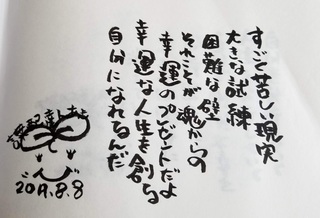 すごく苦しい現実
大きな試練
困難な壁
それこそが魂からの
幸運のプレゼントだよ
幸運な人生を創る
自分になれるんだ
2019.8.8